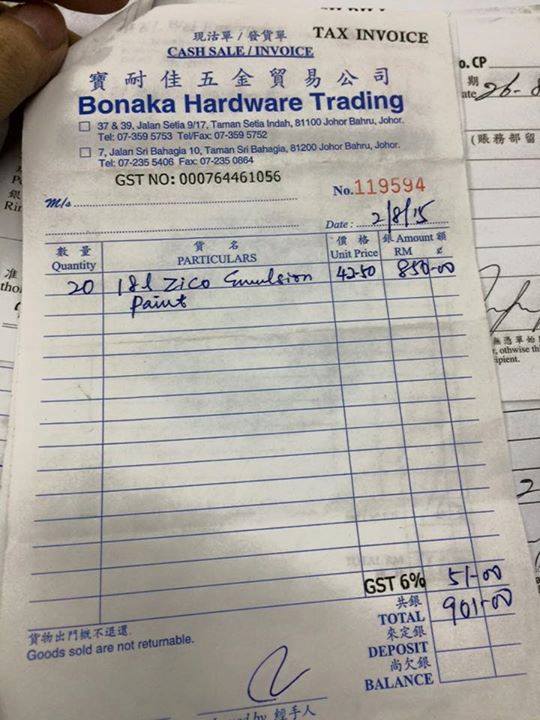 現沽單 / 發貨單 TAX INVOICE
CASH SALE / INVOICE
寶耐佳五金貿易公司
Bonaka Hardware Trading
37 & 39, Jalan Setia 9/17, Taman Setia Indah, 81100 Johor Bahru, Johor.
Tel: 07-359 5753 Tel/Fax: 07-359 5752
7, Jalan Sri Bahagia 10, Taman Sri Bahagia, 81200 Johor Bahru, Johor.
Tel: 07-235 5406 Fax: 07-235 0864
GST NO: 000764461056
M/s No.119594
Date: 2/8/15
數量 貨名 價格 銀 Amount 額
Quantity PARTICULARS Unit Price RM ¢
20 18l Zico Emulsion 42-50 850-00
Paint
GST 6% 51-00
共銀
TOTAL 901-00
來定銀
DEPOSIT
尚欠銀
BALANCE
貨物出門概不退還
Goods sold are not returnable.
by 經手人
o. CP
期
ate 26-8
(賬務部留